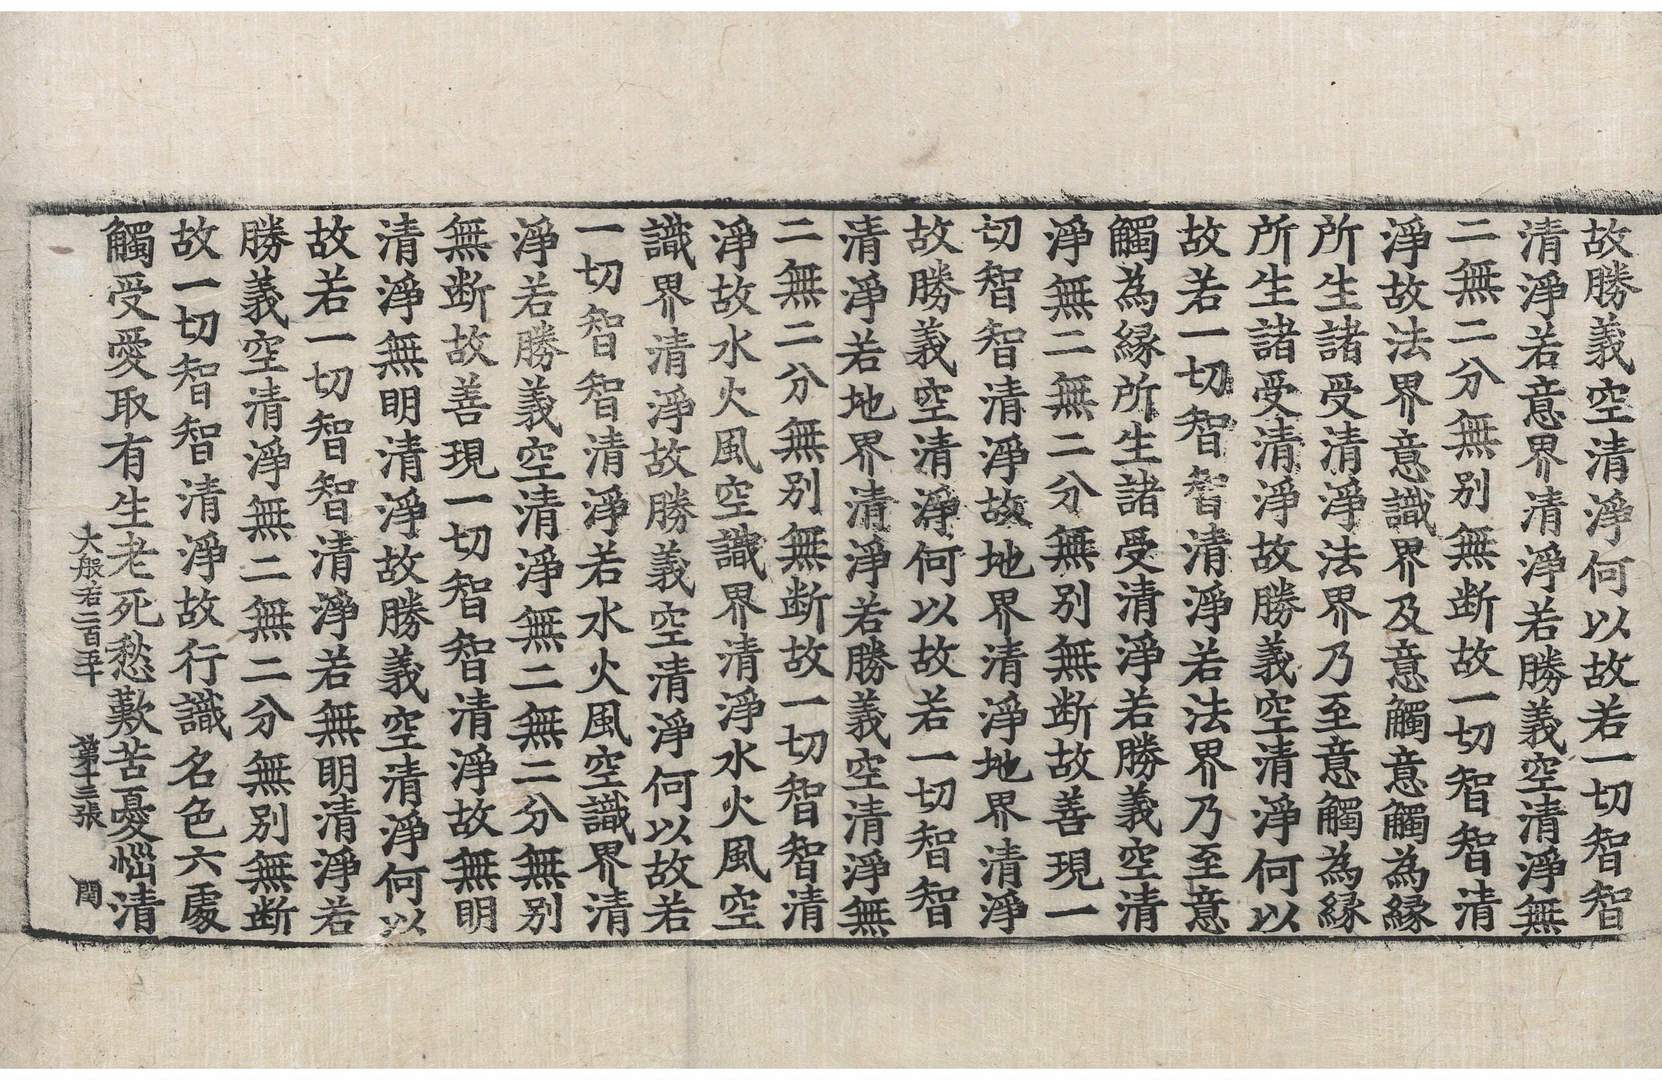 故勝義空清淨何以故若一切智智
清淨若意界清淨若勝義空清淨無
二無二分無別無断故一切智智清
淨故法界意識界及意觸意觸為縁
所生諸受清淨法界乃至意觸為縁
所生諸受清淨故勝義空清淨何以
故若一切智智清淨若法界乃至意
觸為縁所生諸受清淨若勝義空清
淨無二無二分無別無断故善現一
切智智清淨故地界清淨地界清淨
故勝義空清淨何以故若一切智智
清淨若地界清淨若勝義空清淨無
二無二分無別無断故一切智智清
淨故水火風空識界清淨水火風空
識界清淨故勝義空清淨何以故若
一切智智清淨若水火風空識界清
淨若勝義空清淨無二無二分無別
無断故善現一切智智清淨故無明
清淨無明清淨故勝義空清淨何以
故若一切智智清淨若無明清淨若
勝義空清淨無二無二分無別無断
故一切智智清淨故行識名色六處
觸受愛取有生老死愁歎苦憂惱清
大般若二百五十 第十三張 閏